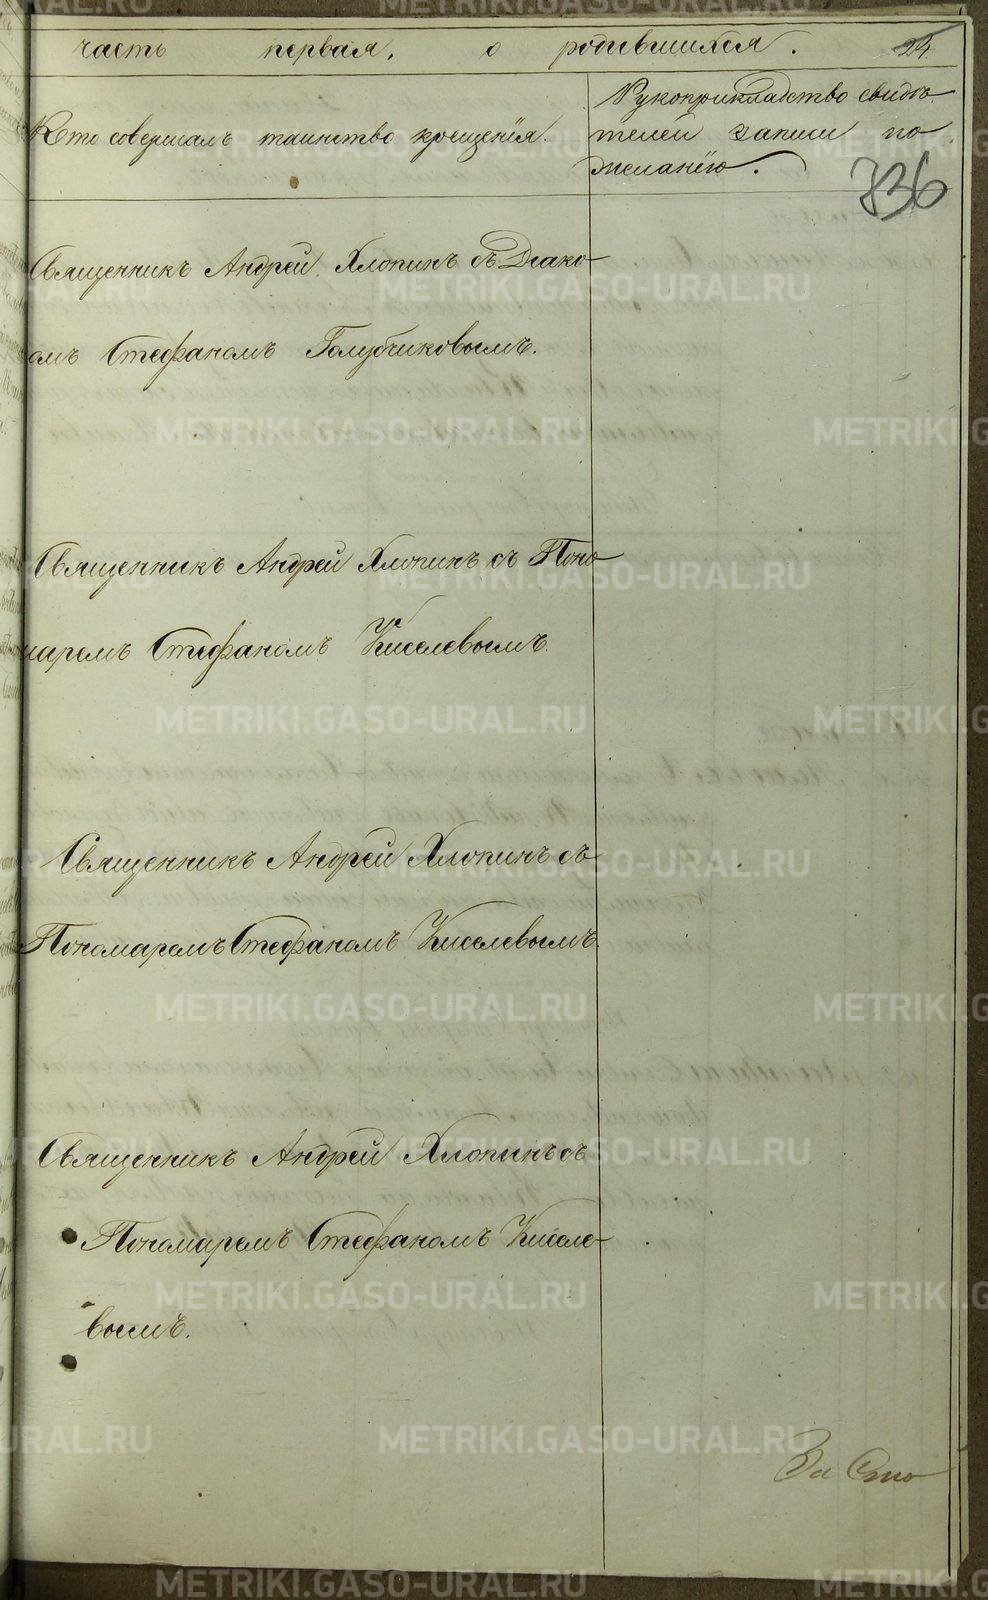 часть первая, о родившихся. 24.
Кто совершалъ таинство крещенiя.
Рукоприкладство свидѣ
телей записи по
желанiю.
736
Священникъ Андрей Хлопинъ съ Диако
омъ Стефаномъ Голубчиковымъ.
Священникъ Андрей Хлопинъ съ Поно
маремъ Стефаномъ Киселевымъ.
Священникъ Андрей Хлопинъ съ
Пономаремъ Стефаномъ Киселевымъ.
Священникъ Андрей Хлопинъ съ
Пономаремъ Стефаномъ Киселе
вымъ.
METRIKI.GASO-URAL.RU